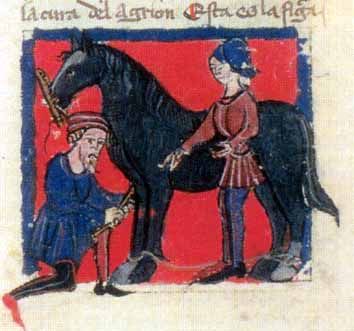 la cura del Agrion Esta es la figa